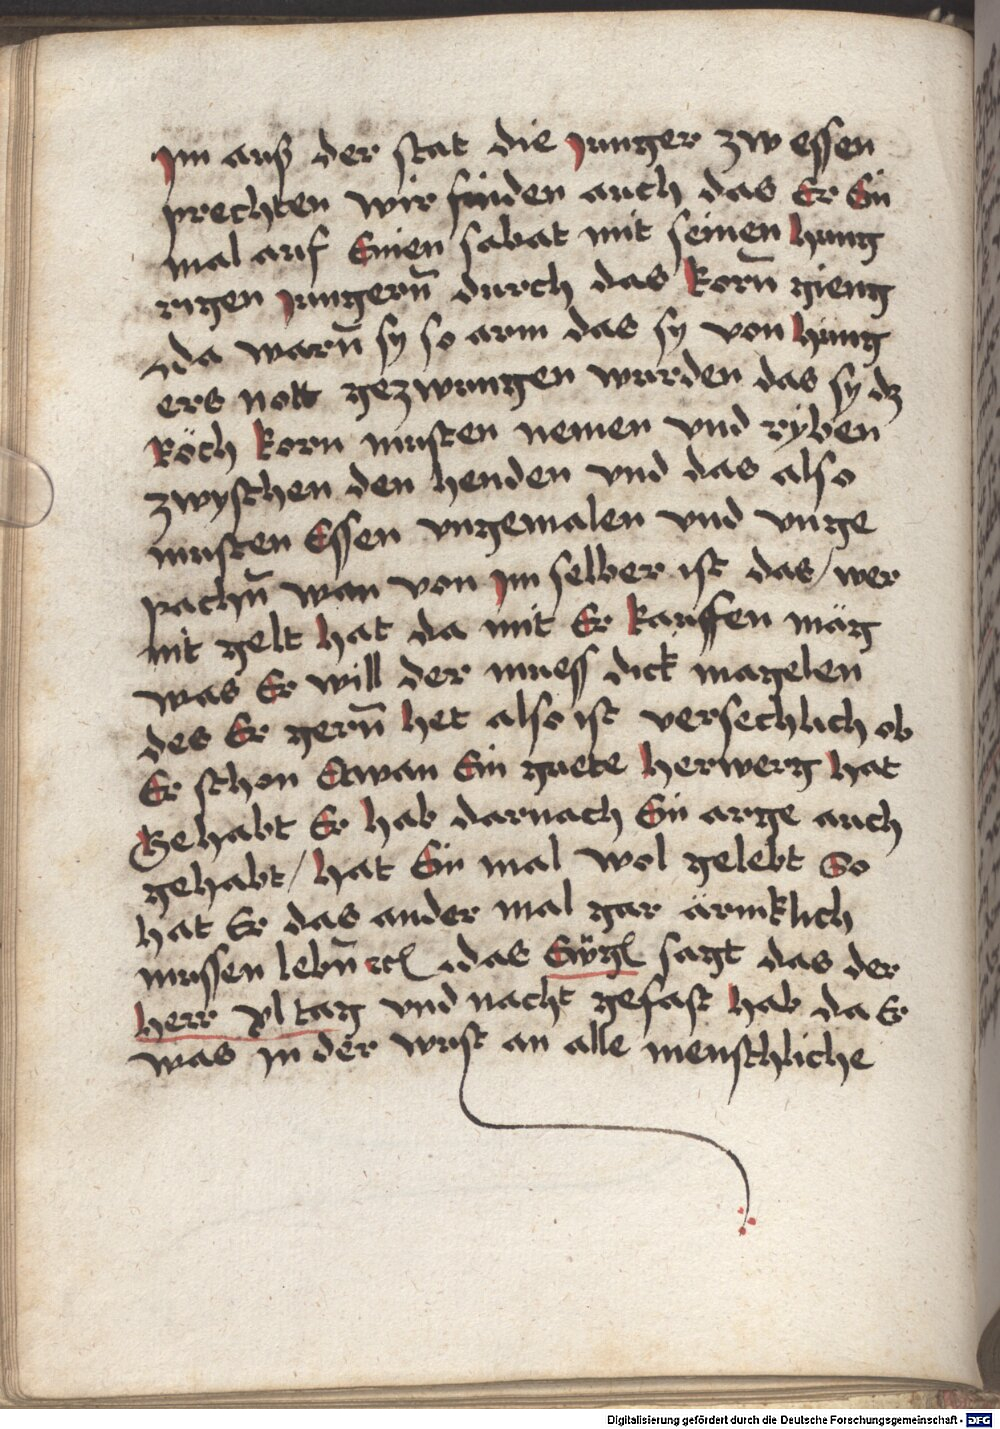 Im auß der stat die Junger zw essen
prechten wir finden auch das Er Ein
mal auf Einen sabat mit seinen hung
rigen Jungern̄ durch das korn̄ gieng
da warn̄ sy so arm das sy von hung
ers nott gezwungen wurden das sy dz
Röch korn musten nemen vnd ryben
zwyschen den henden vnd das also
musten Essen vngemalen vnd vnge
pachn̄ wan von Im selber ist das / wer
nit gelt hat da mit Er kauffen mäg
was Er will der muess dick magelen
des Er gern̄ het also ist versechlich ob
Er schon Etwan Ein guete herwerg hat
Gehabt Er hab darnach Ein arge auch
gehabt / hat Ein mal wol gelebt So
hat Er das ander mal gar ärmklich
mussen lebn̄ das Ewgl sagt das der
herr xl tag vnd nacht gefast hab da Er
was in der wüst an alle menschliche
Digitalisierung gefördert durch die Deutsche Forschungsgemeinschaft - DFG